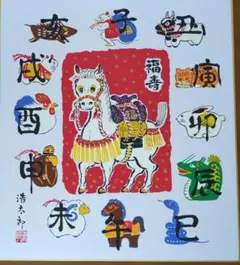 子
丑
寅
卯
辰
巳
午
未
申
酉
戌
亥
福寿
浩太郎